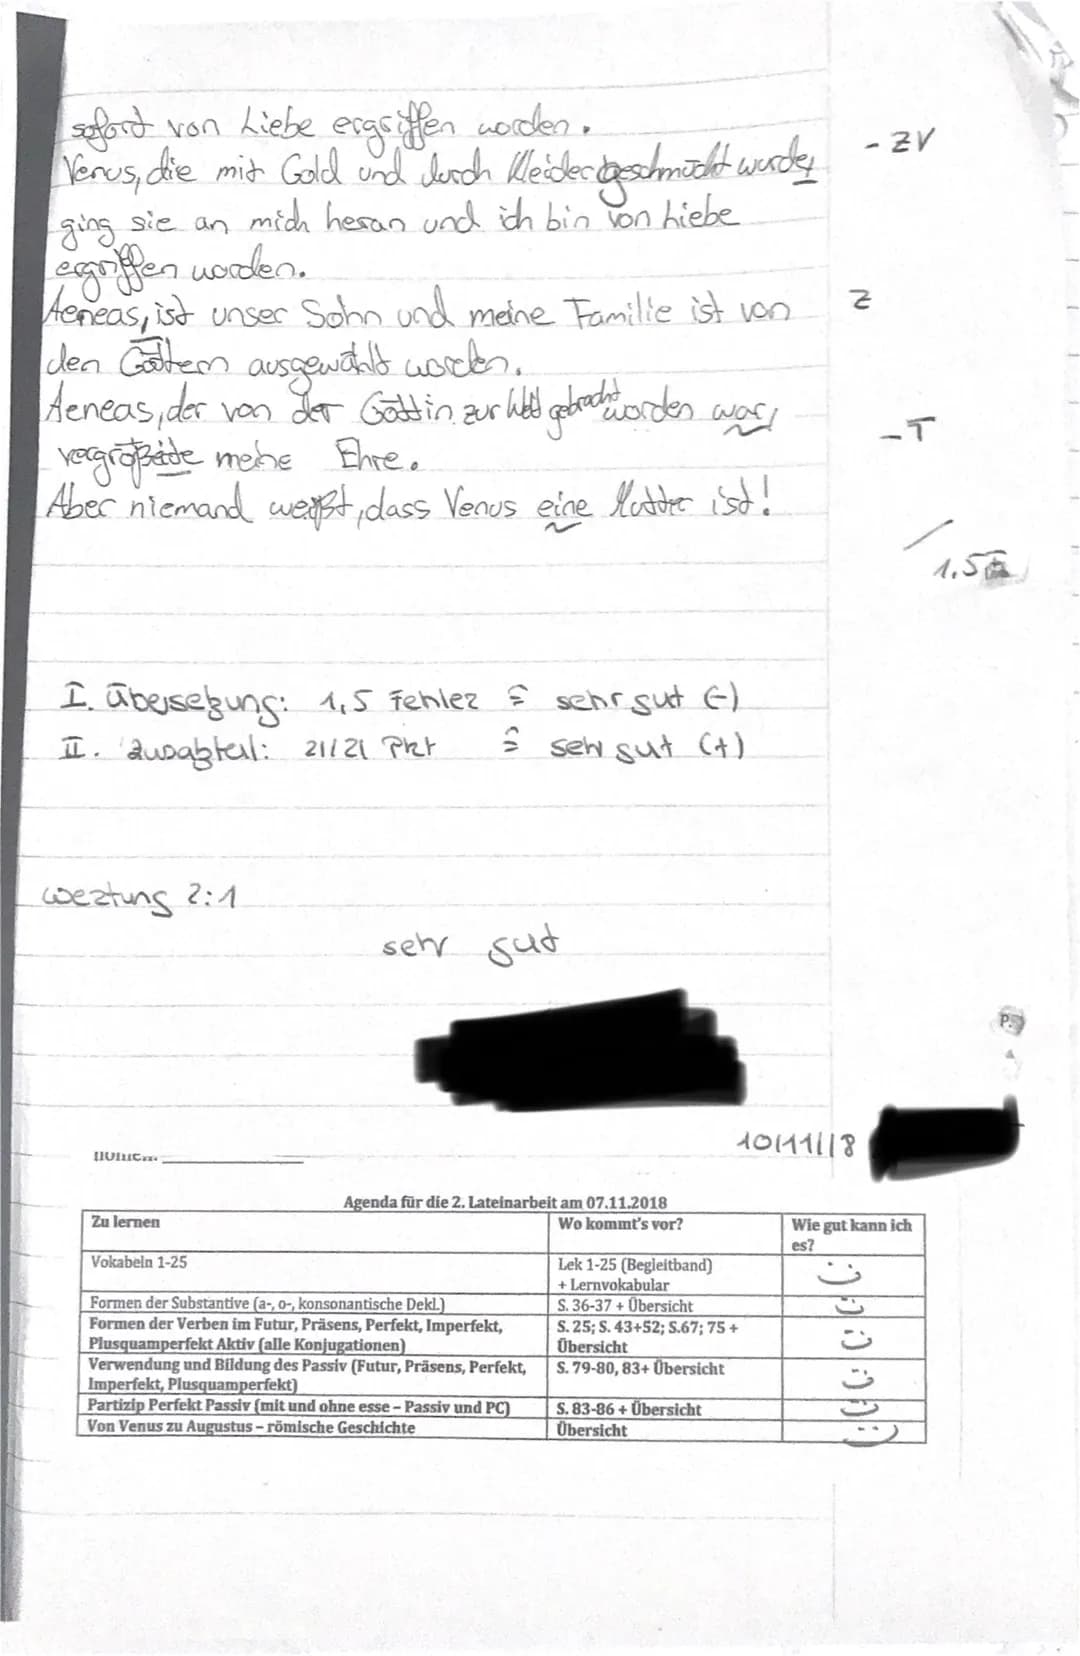 sofort von Liebe ergriffen worden.
Venus, die mit Gold und durch Kleider geschmückt wurde, - ZV
ging sie an mich heran und ich bin von Liebe
ergriffen worden.
Aeneas, ist unser Sohn und meine Familie ist von Z
den Göttern ausgewählt worden.
Aeneas, der von der Göttin zur Welt gebracht worden war, - T
vergrößerte meine Ehre.
Aber niemand weißt, dass Venus eine Mutter ist!
/ 1,5
I. Übersetzung: 1,5 Fehler ≙ sehr gut (-)
II. Zusatzteil: 21/21 Pkt ≙ sehr gut (+)
Wertung 2:1
sehr gut
10/11/18
Agenda für die 2. Lateinarbeit am 07.11.2018
Zu lernen Wo kommt's vor? Wie gut kann ich
es?
Vokabeln 1-25 Lek 1-25 (Begleitband)
+ Lernvokabular
Formen der Substantive (a-, o-, konsonantische Dekl.) S. 36-37 + Übersicht
Formen der Verben im Futur, Präsens, Perfekt, Imperfekt, S. 25; S. 43+52; S.67; 75 +
Plusquamperfekt Aktiv (alle Konjugationen) Übersicht
Verwendung und Bildung des Passiv (Futur, Präsens, Perfekt, S. 79-80, 83+ Übersicht
Imperfekt, Plusquamperfekt)
Partizip Perfekt Passiv (mit und ohne esse – Passiv und PC) S. 83-86 + Übersicht
Von Venus zu Augustus – römische Geschichte Übersicht